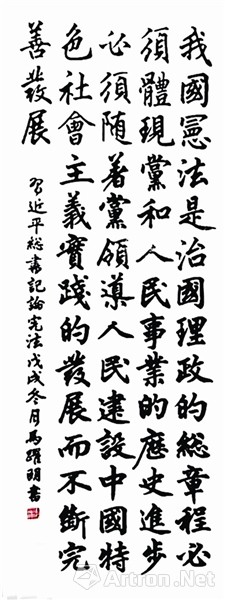 我國憲法是治國理政的総章程必
須體現黨和人民事業的歷史進步
必須随著黨領導人民建設中國特
色社會主義實踐的發展而不斷完
善發展
習近平総書記論憲法戊戌冬月馬躍明書
Artron.Net